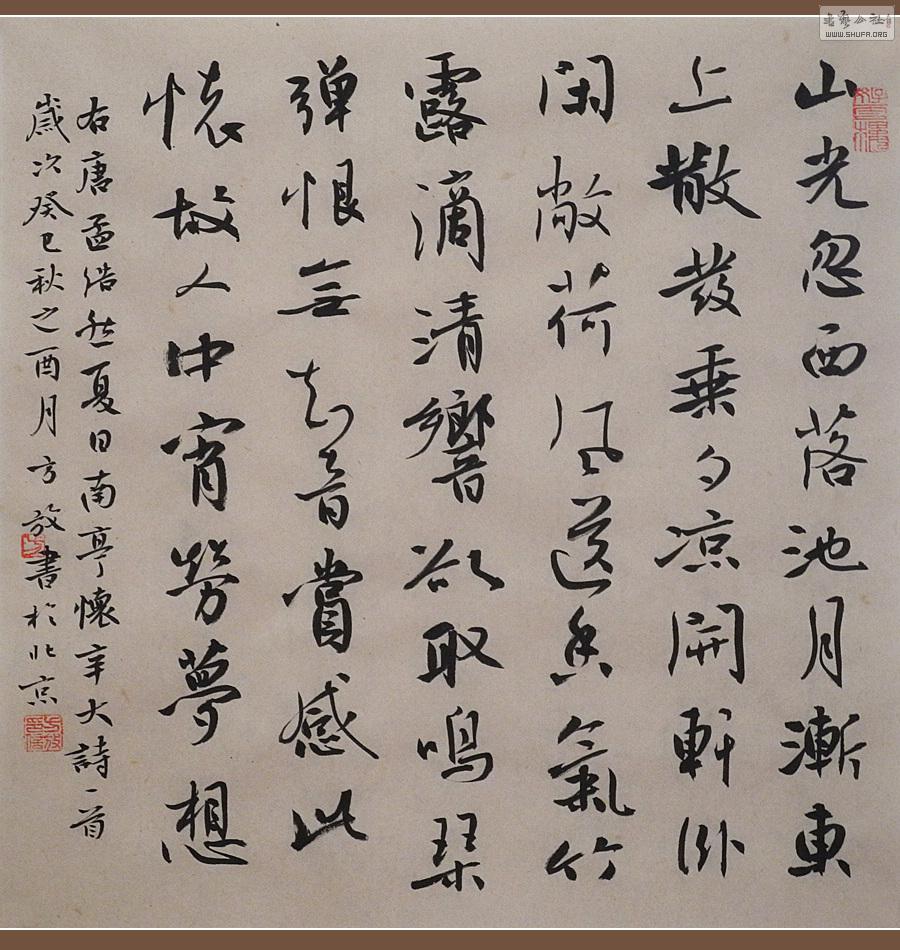 山光忽西落池月漸東
上散發乘夕凉開軒卧
閑敞荷風送香氣竹
露滴清響欲取鳴琴
弹恨無知音賞感此
懷故人中宵勞夢想
右唐孟浩然夏日南亭懷辛大詩一首
歲次癸巳秋之酉月方放書於北京
書藝公社
WWW.SHUFA.ORG